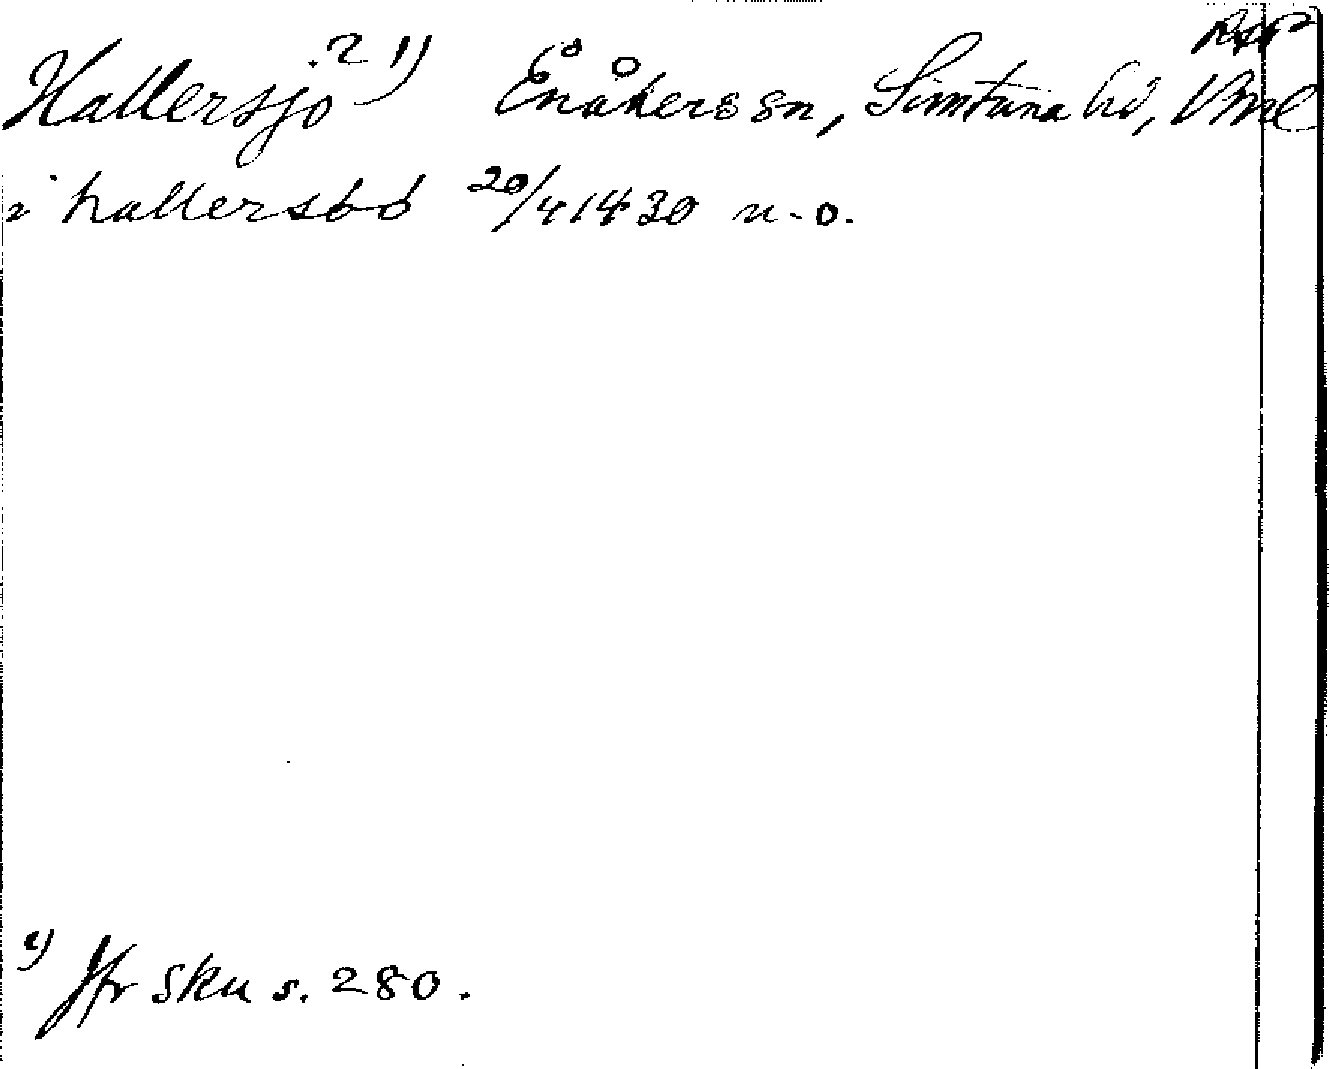 Hallersjö ? 1) Enåkers sn, Simtuna hd, Vml
i hallersbo 20/4 1430 n.o.
1) Jfr Sku s. 280.